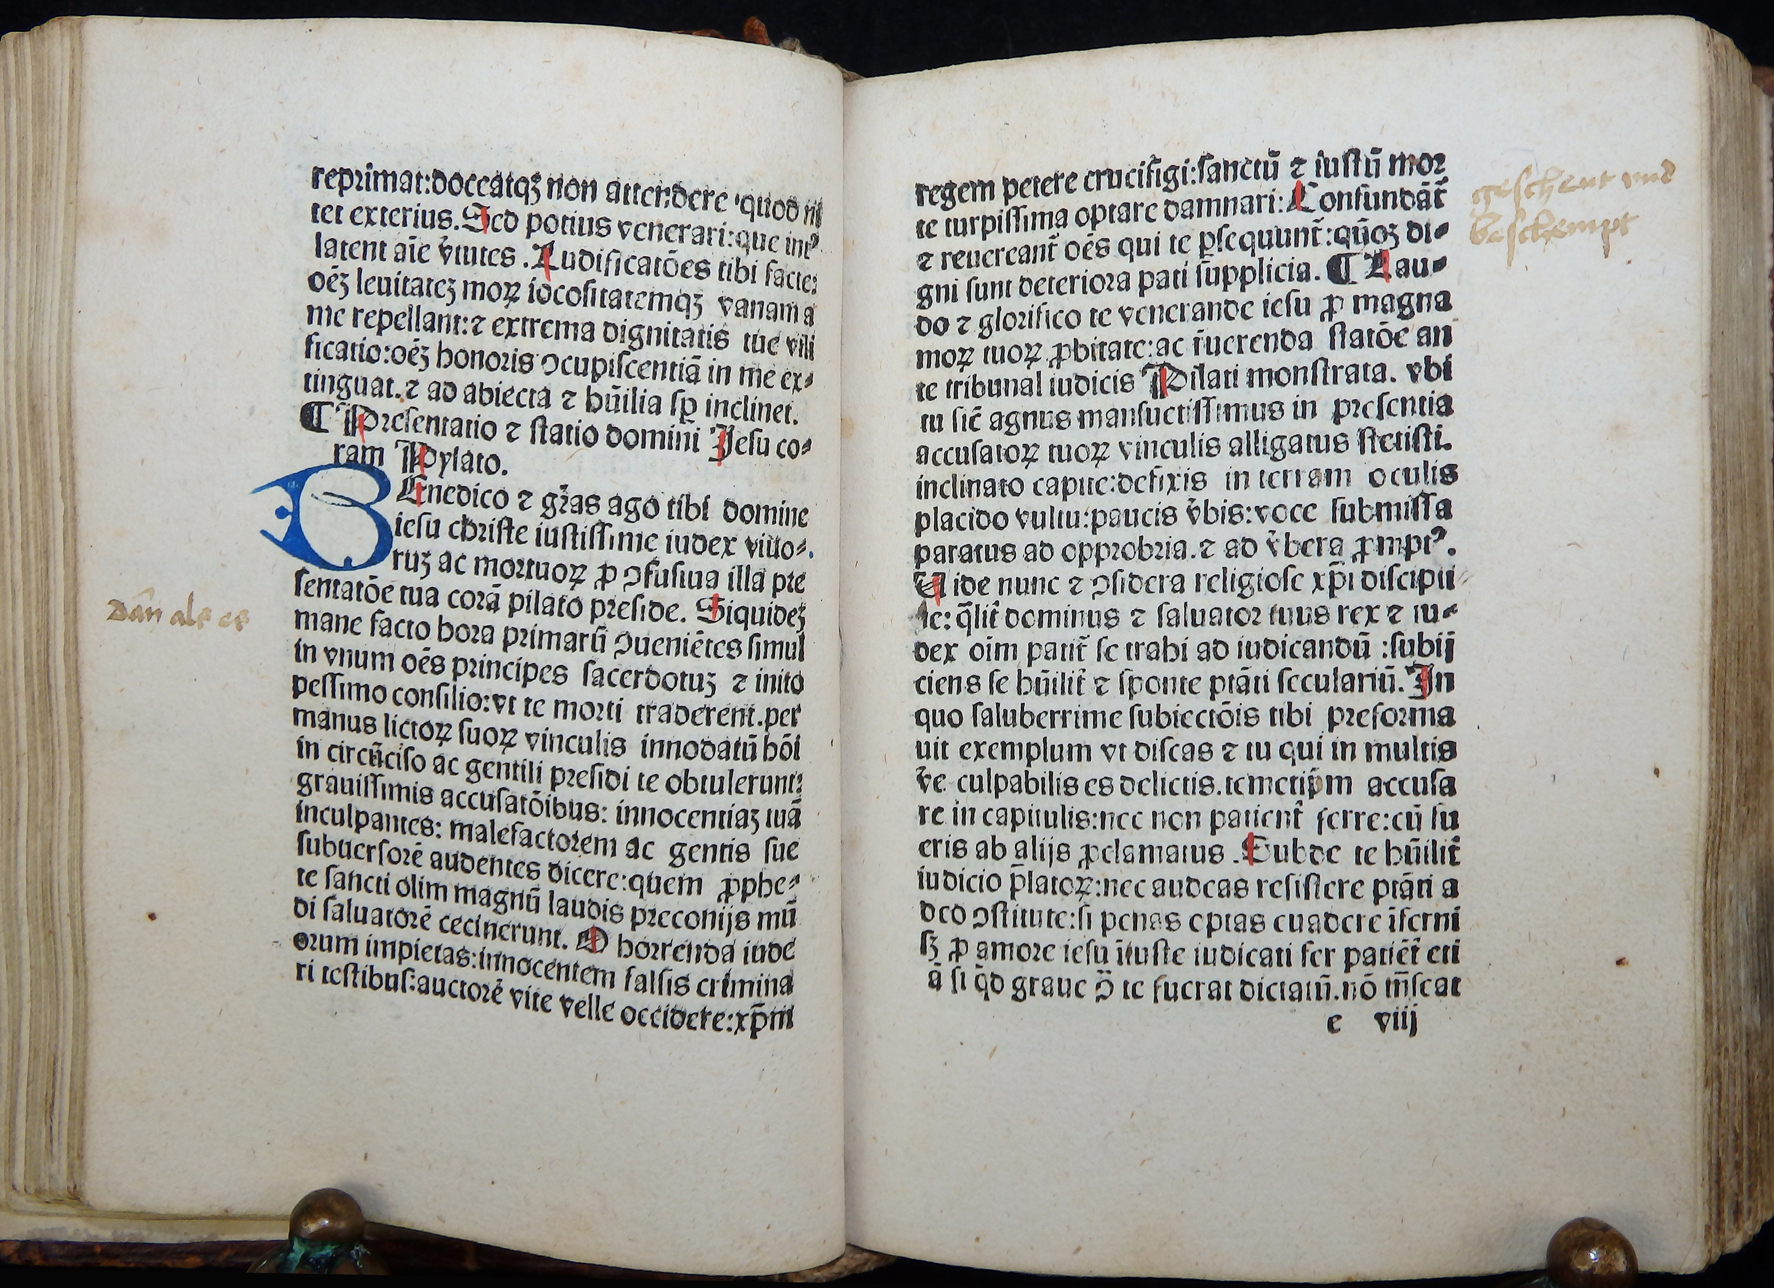 reprimat:doceatqꝫ non attendere quod ni
tet exterius. Sed potius venerari:que intꝰ
latent aīe v̄tutes. Ludificatōes tibi facte:
oēꝫ leuitateꝫ moꝝ iocositatemqꝫ vanam a
me repellant:⁊ extrema dignitatis tue vili
ficatio:oēꝫ honoris ꝯcupiscentiā in me ex⸗
tinguat.⁊ ad abiecta ⁊ hūilia sp̄ inclinet.
¶ Presentatio ⁊ statio domini Jesu co⸗
ram Pylato.
BEnedico ⁊ gr̄as ago tibi domine
iesu christe iustissime iudex viuo⸗
ruꝫ ac mortuoꝝ ꝓ ꝯfusiua illa pre
sentatōe tua corā pilato preside. Siquideꝫ
Dan als es
mane facto hora primarū ꝯueniētes simul
in vnum oēs principes sacerdotuꝫ ⁊ inito
pessimo consilio:vt te morti traderent.per
manus lictoꝝ suoꝝ vinculis innodatū hōi
in circūciso ac gentili presidi te obtulerunt:
grauissimis accusatōibus: innocentiaꝫ tuā
inculpantes: malefactorem ac gentis sue
subuersorē audentes dicere:quem ꝓphe⸗
te sancti olim magnū laudis preconijs mū
di saluatorē cecinerunt. O horrenda iude
orum impietas:innocentem falsis crimina
ri testibus:auctorē vite velle occidere:xp̄m
regem petere crucifigi:sanctū ⁊ iustū mor
te turpissima optare damnari: Confundāt̄
geschent vnd
beschempt
⁊ reuereant̄ oēs qui te ꝑsequunt̄:qūoꝫ di⸗
gni sunt deteriora pati supplicia. ¶ Lau⸗
do ⁊ glorifico te venerande iesu ꝓ magna
moꝝ tuoꝝ ꝓbitate:ac r̄uerenda statōe an
te tribunal iudicis Pilati monstrata. vbi
tu sic̄ agnus mansuetissimus in presentia
accusatoꝝ tuoꝝ vinculis alligatus stetisti.
inclinato capite:defixis in terram oculis
placido vultu:paucis v̄bis:voce submissa
paratus ad opprobria.⁊ ad v̄bera ꝓmptꝰ.
Uide nunc ⁊ ꝯsidera religiose xp̄i discipu
le: q̄lit̄ dominus ⁊ saluator tuus rex ⁊ iu⸗
dex oim patit̄ se trahi ad iudicandū :subij
ciens se hūilit̄ ⁊ sponte ptāti seculariū. In
quo saluberrime subiectōis tibi preforma
uit exemplum vt discas ⁊ tu qui in multis
v̄e culpabilis es delictis.temetip̄m accusa
re in capitulis:nec non patient̄ ferre:cū fu
eris ab alijs ꝓclamatus . Subde te hūilit̄
iudicio p̄latoꝝ:nec audeas resistere ptāti a
deo ꝯstitute:si penas optas euadere īferni
sꝫ ꝓ amore iesu īiuste iudicati fer patiēt̄ eti
ā si q̄d graue ꝯ̄ te fuerat dictatū.nō īn̄scat
e viij